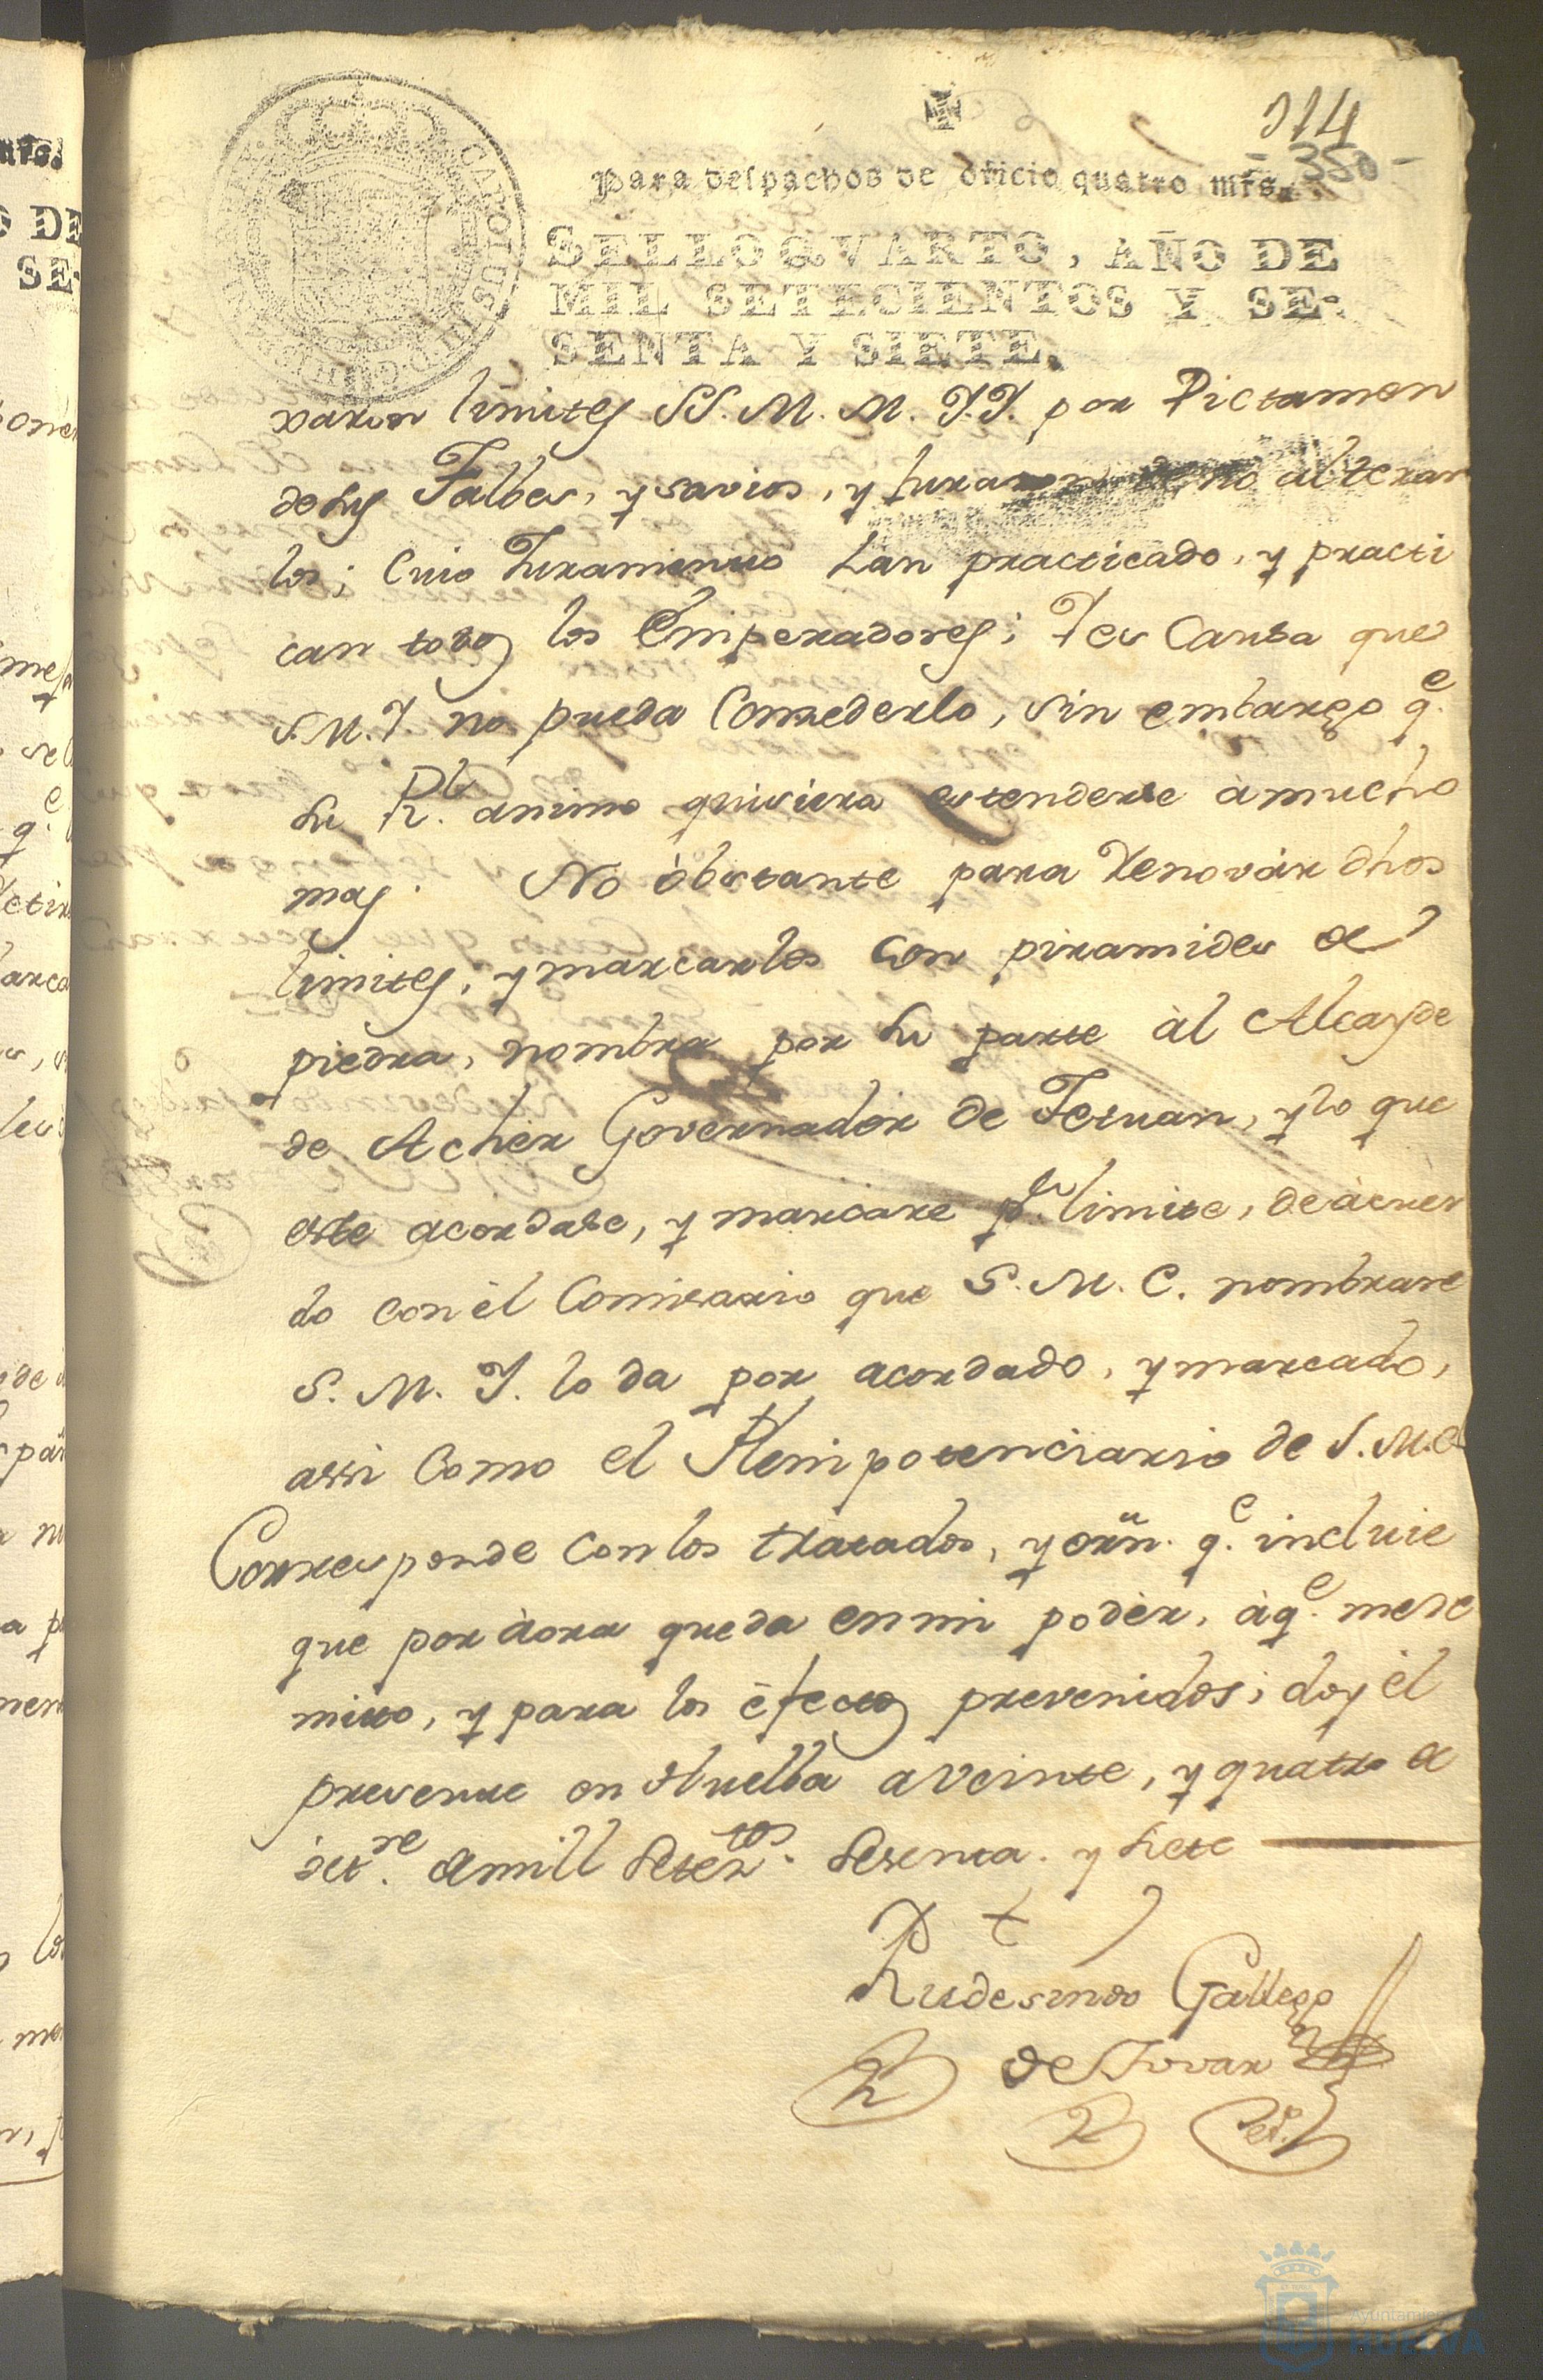 214
- 350 -
Para despachos de oficio quatro mrs.
SELLO QVARTO, AÑO DE
MIL SETECIENTOS Y SE-
SENTA Y SIETE.
CAROLUS
xaron limites SS. M. M. Y.Y. por Dictamen
de sus Talbes, y savios, y juraron de no alterar
los; cuio Juramento han practicado, y practi
can todos los Emperadores; Y es Causa que
S.M.Y. no pueda Concederlo, sin embargo q.e
su R.l animo quisiera estenderse à mucho
mas. No òbstante para Renovàr dhos
limites, y marcarlos con piramides de
piedra, nombra por su parte àl Alcayde
de Acher Governador de Tetuan, y lo que
este acordase, y marcare p.r limite, de àcuer
do con èl Comisario que S. M. C. nombrare
S. M. Y. lo da por acordado, y marcado,
assi como el Plenipotenciario de S.M.C.
Corresponde con los tratados, y orñ. q.e incluie
que por àora queda en mi podèr, à q.e me re
mito, y para los èfectos prevenidos, doy èl
presente en Huelba a veinte, y quatro de
oct.re de mill setez.tos sesenta y siete
Rudesindo Gallego
de Tovar